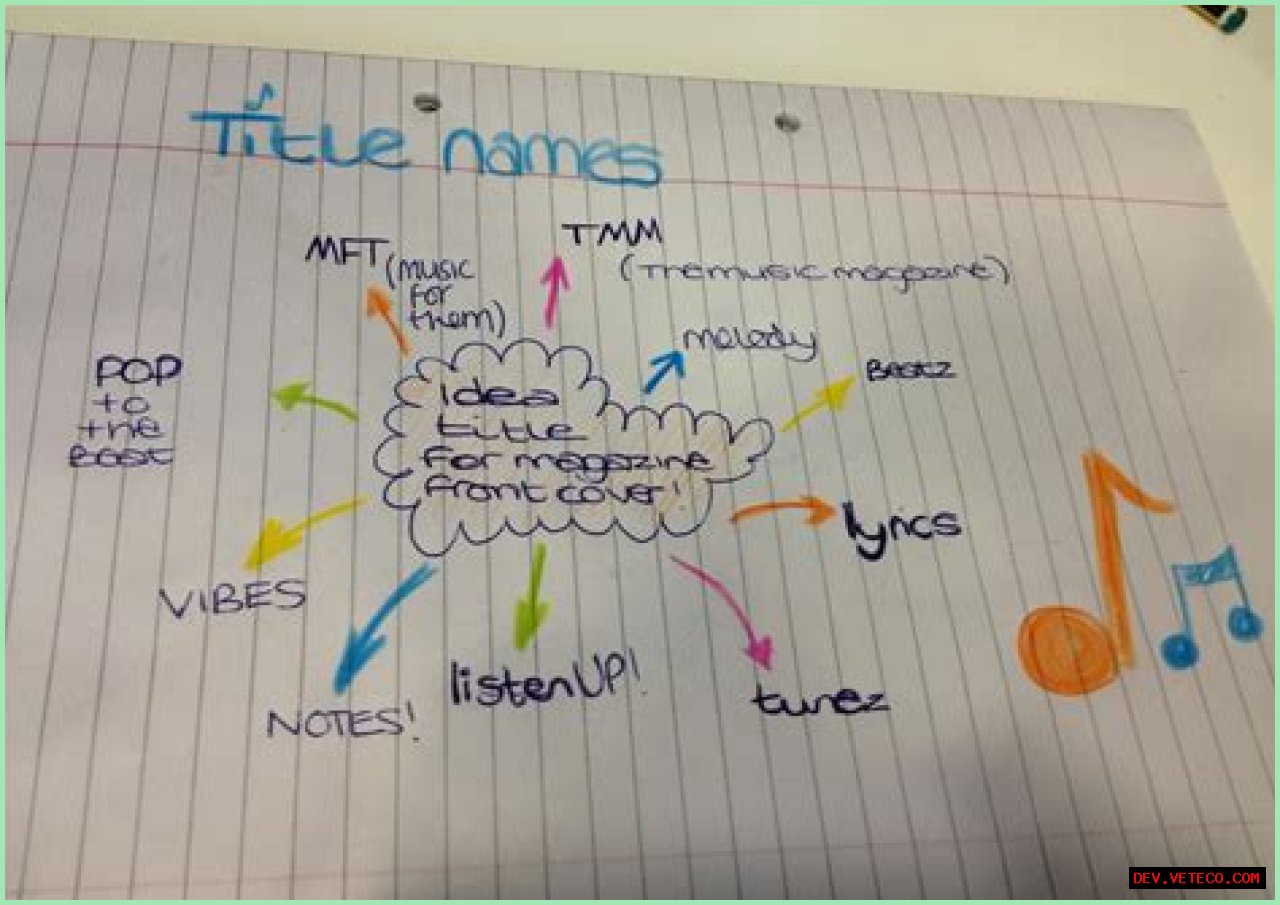 Title names
MFT (music
for
them)
TMM
(The music magazine)
melody
Beatz
POP
to
the
Beat
Idea
title
for magazine
front cover!
lyrics
VIBES
NOTES!
listenUP!
tunez
DEV.VETECO.COM